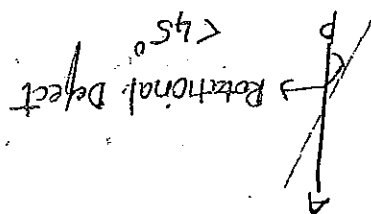 A
→ Rotational Defect
< 45°
P